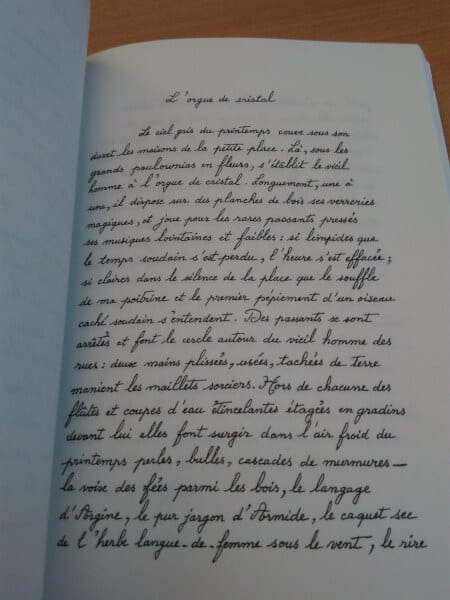 L'orgue de cristal
Le ciel gris du printemps couve sous son
duvet les maisons de la petite place. Là, sous les
grands paulownias en fleurs, s'établit le vieil
homme à l'orgue de cristal. Longuement, une à
une, il dispose sur des planches de bois ses verreries
magiques, et joue pour les rares passants pressés
ses musiques lointaines et faibles : si limpides que
le temps soudain s'est perdu, l'heure s'est effacée ;
si claires dans le silence de la place que le souffle
de ma poitrine et le premier pépiement d'un oiseau
caché soudain s'entendent. Des passants se sont
arrêtés et font le cercle autour du vieil homme des
rues : deux mains plissées, usées, tachées de terre
manient les maillets sorciers. Hors de chacune des
flûtes et coupes d'eau étincelantes étagées en gradins
devant lui elles font surgir dans l'air froid du
printemps perles, bulles, cascades de murmures —
la voix des fées parmi les bois, le langage
d'Argine, le pur jargon d'Armide, le caquet sec
de l'herbe langue-de-femme sous le vent, le rire